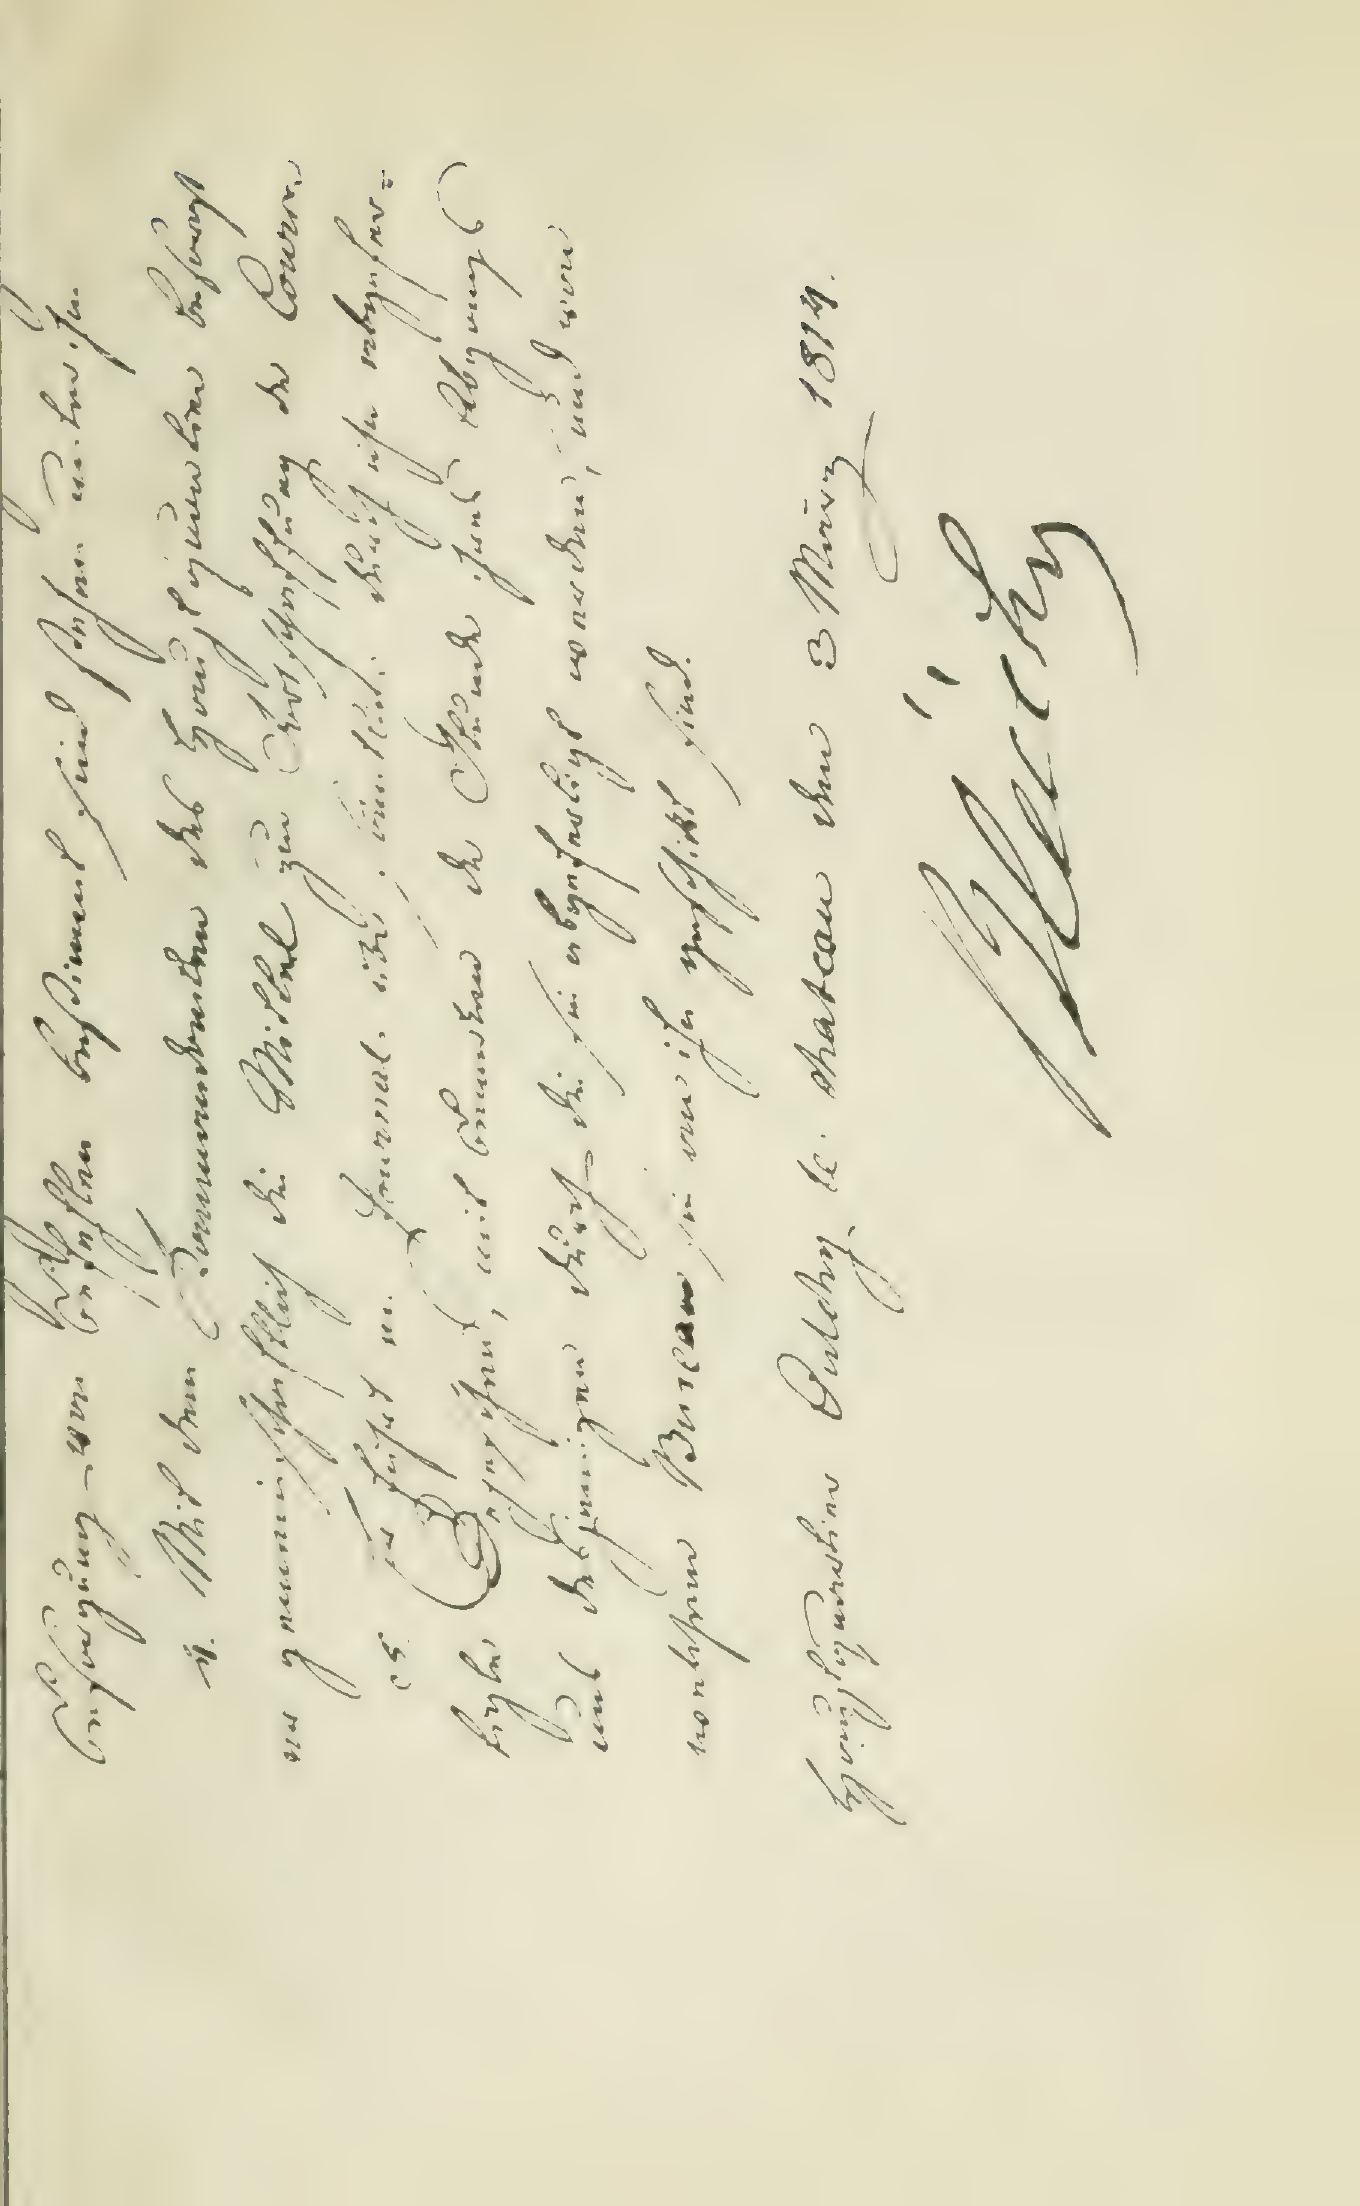 Besorgung von Befehlen bestimmt sind
4. Mit dem Commandanten des Hauptquartier besorgt
er gemeinschaftlich die Mittel zur Fortschaffung der Couriere
5. Er führt ein Journal über sämtliche durch ihn abgefer-
tigte Depeschen, mit Bemerken der Stunde ihres Abgangs
und desjenigen durch die sie abgefertigt werden, und von
welchem Bureau sie an ihn geschickt sind.
Hauptquartier Oulchy le chateau den 3 März 1814.
Blücher